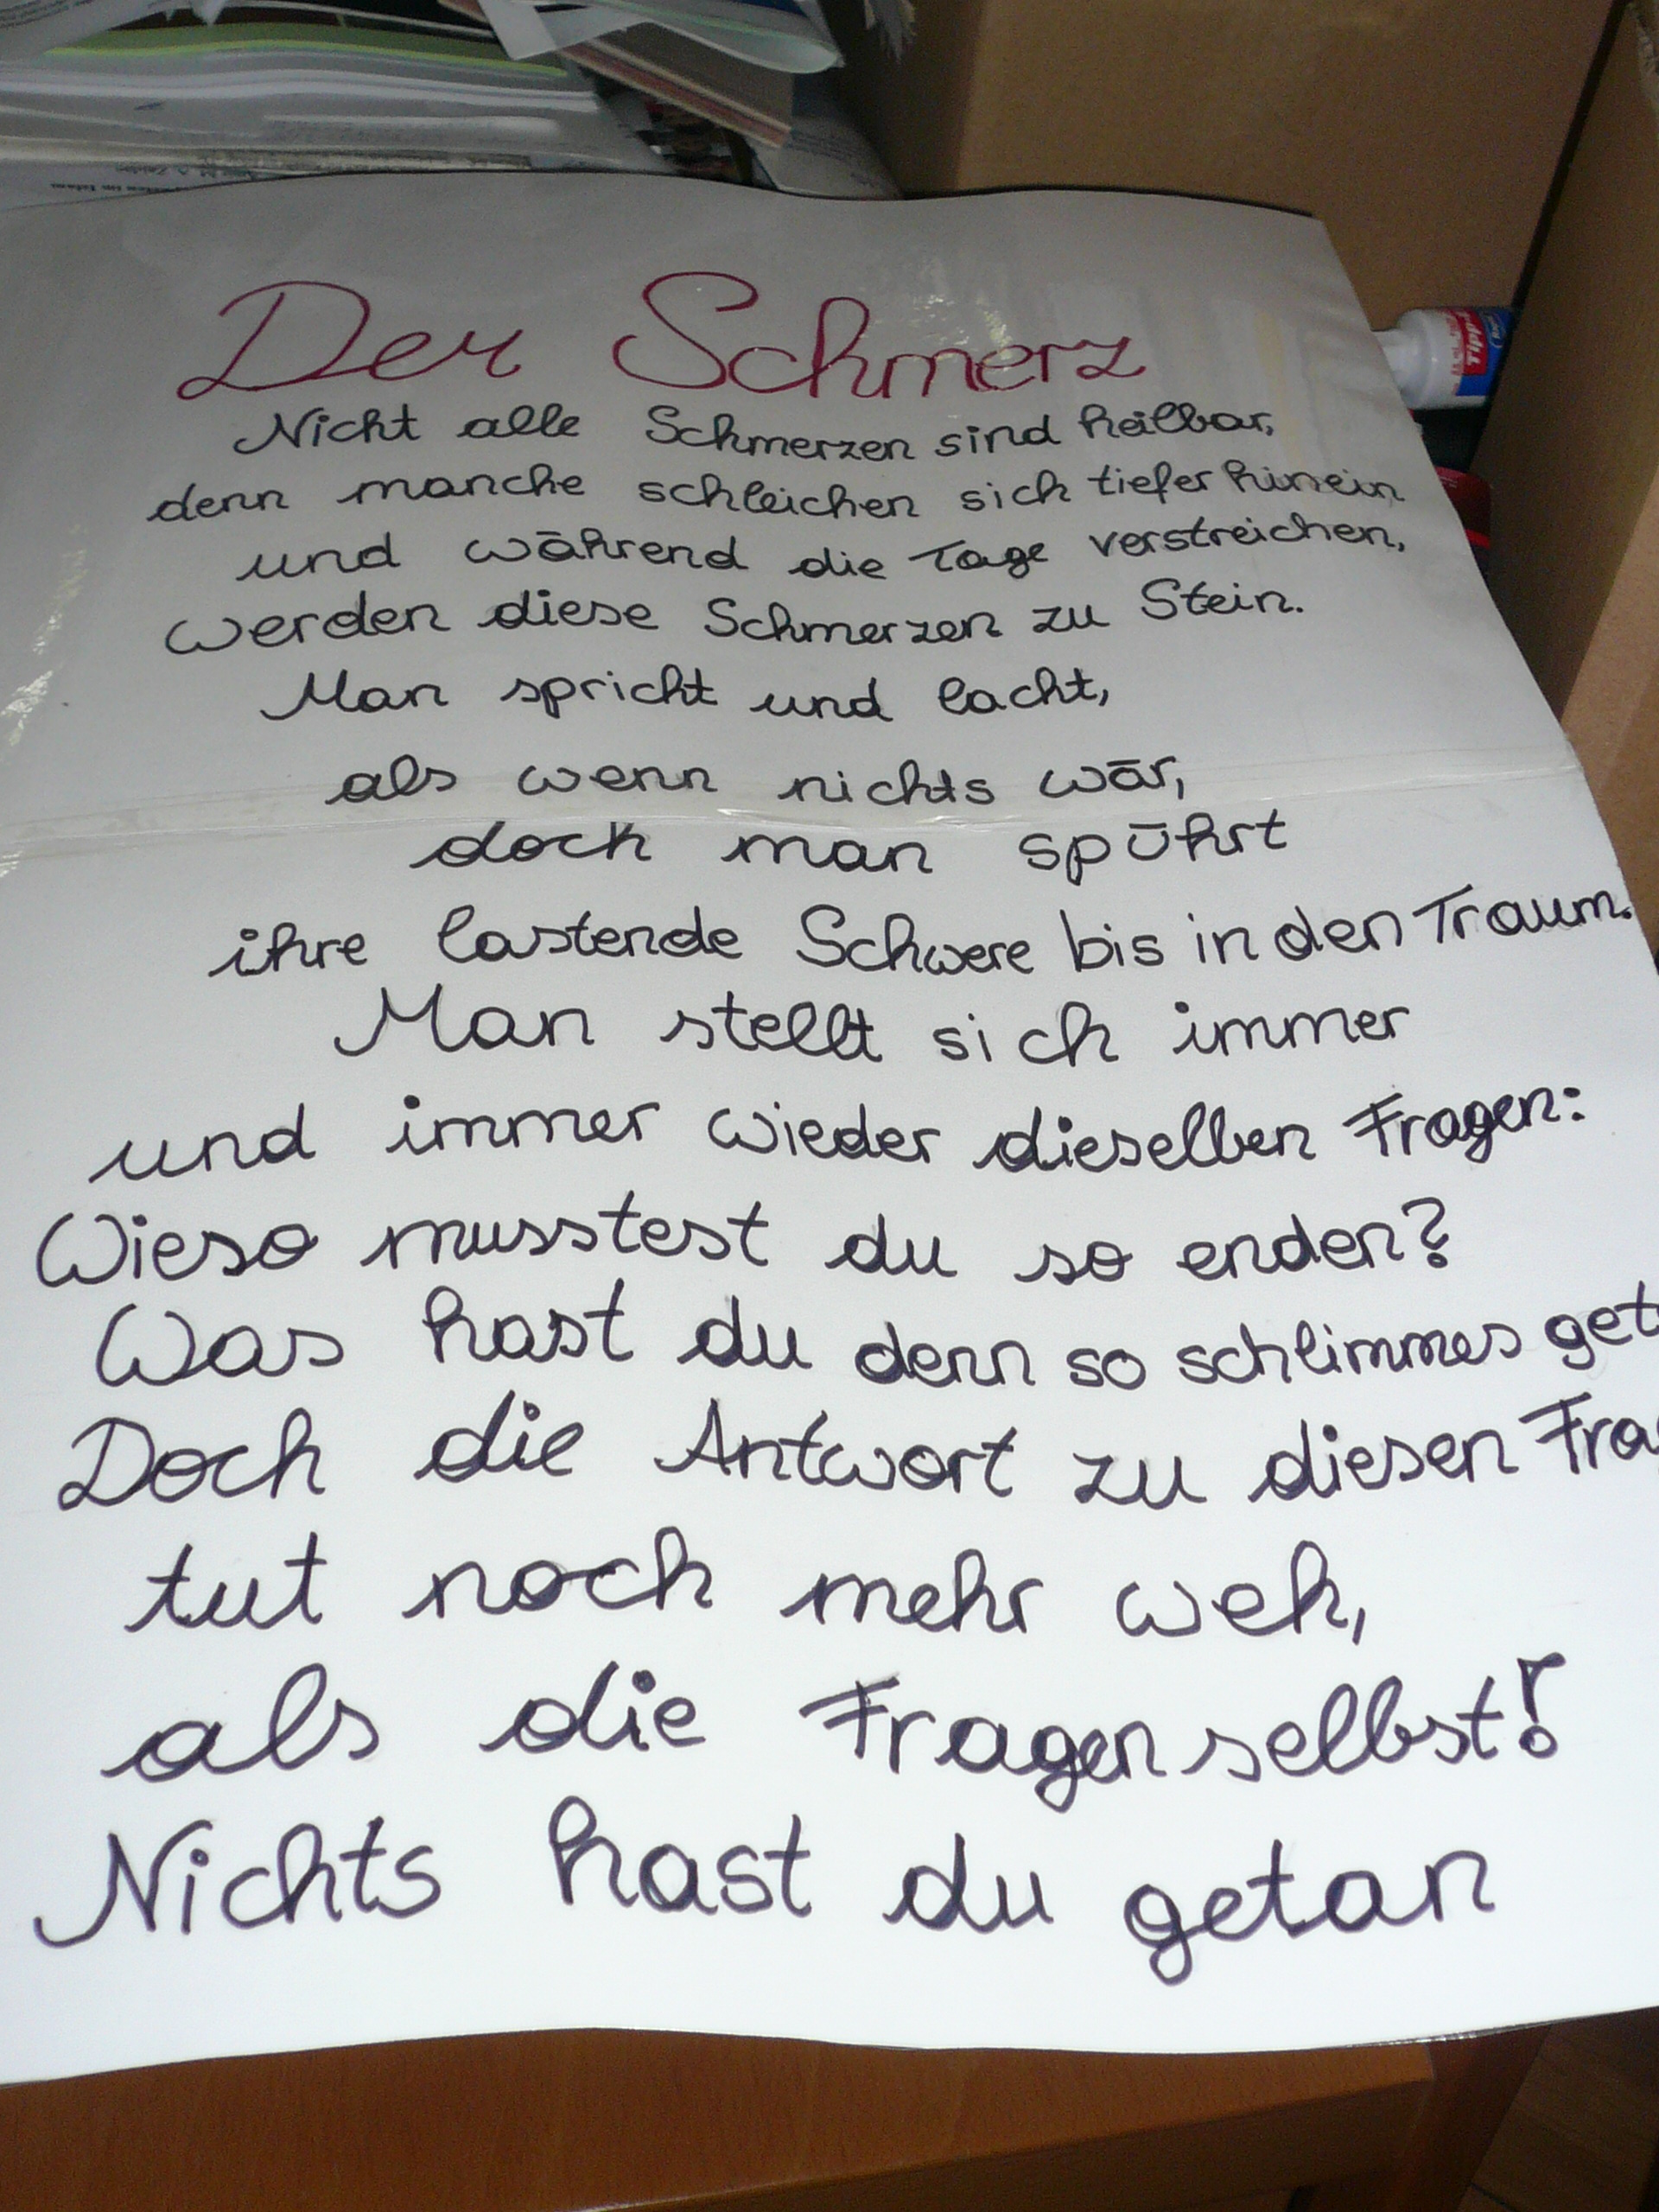 Der Schmerz
Nicht alle Schmerzen sind heilbar,
denn manche schleichen sich tiefer hinein
und während die Tage verstreichen,
werden diese Schmerzen zu Stein.
Man spricht und lacht,
als wenn nichts wär,
doch man spührt
ihre lastende Schwere bis in den Traum.
Man stellt sich immer
und immer wieder dieselben Fragen:
Wieso musstest du so enden?
Was hast du denn so schlimmes get
Doch die Antwort zu diesen Fra
tut noch mehr weh,
als die Fragen selbst!
Nichts hast du getan
Tipp